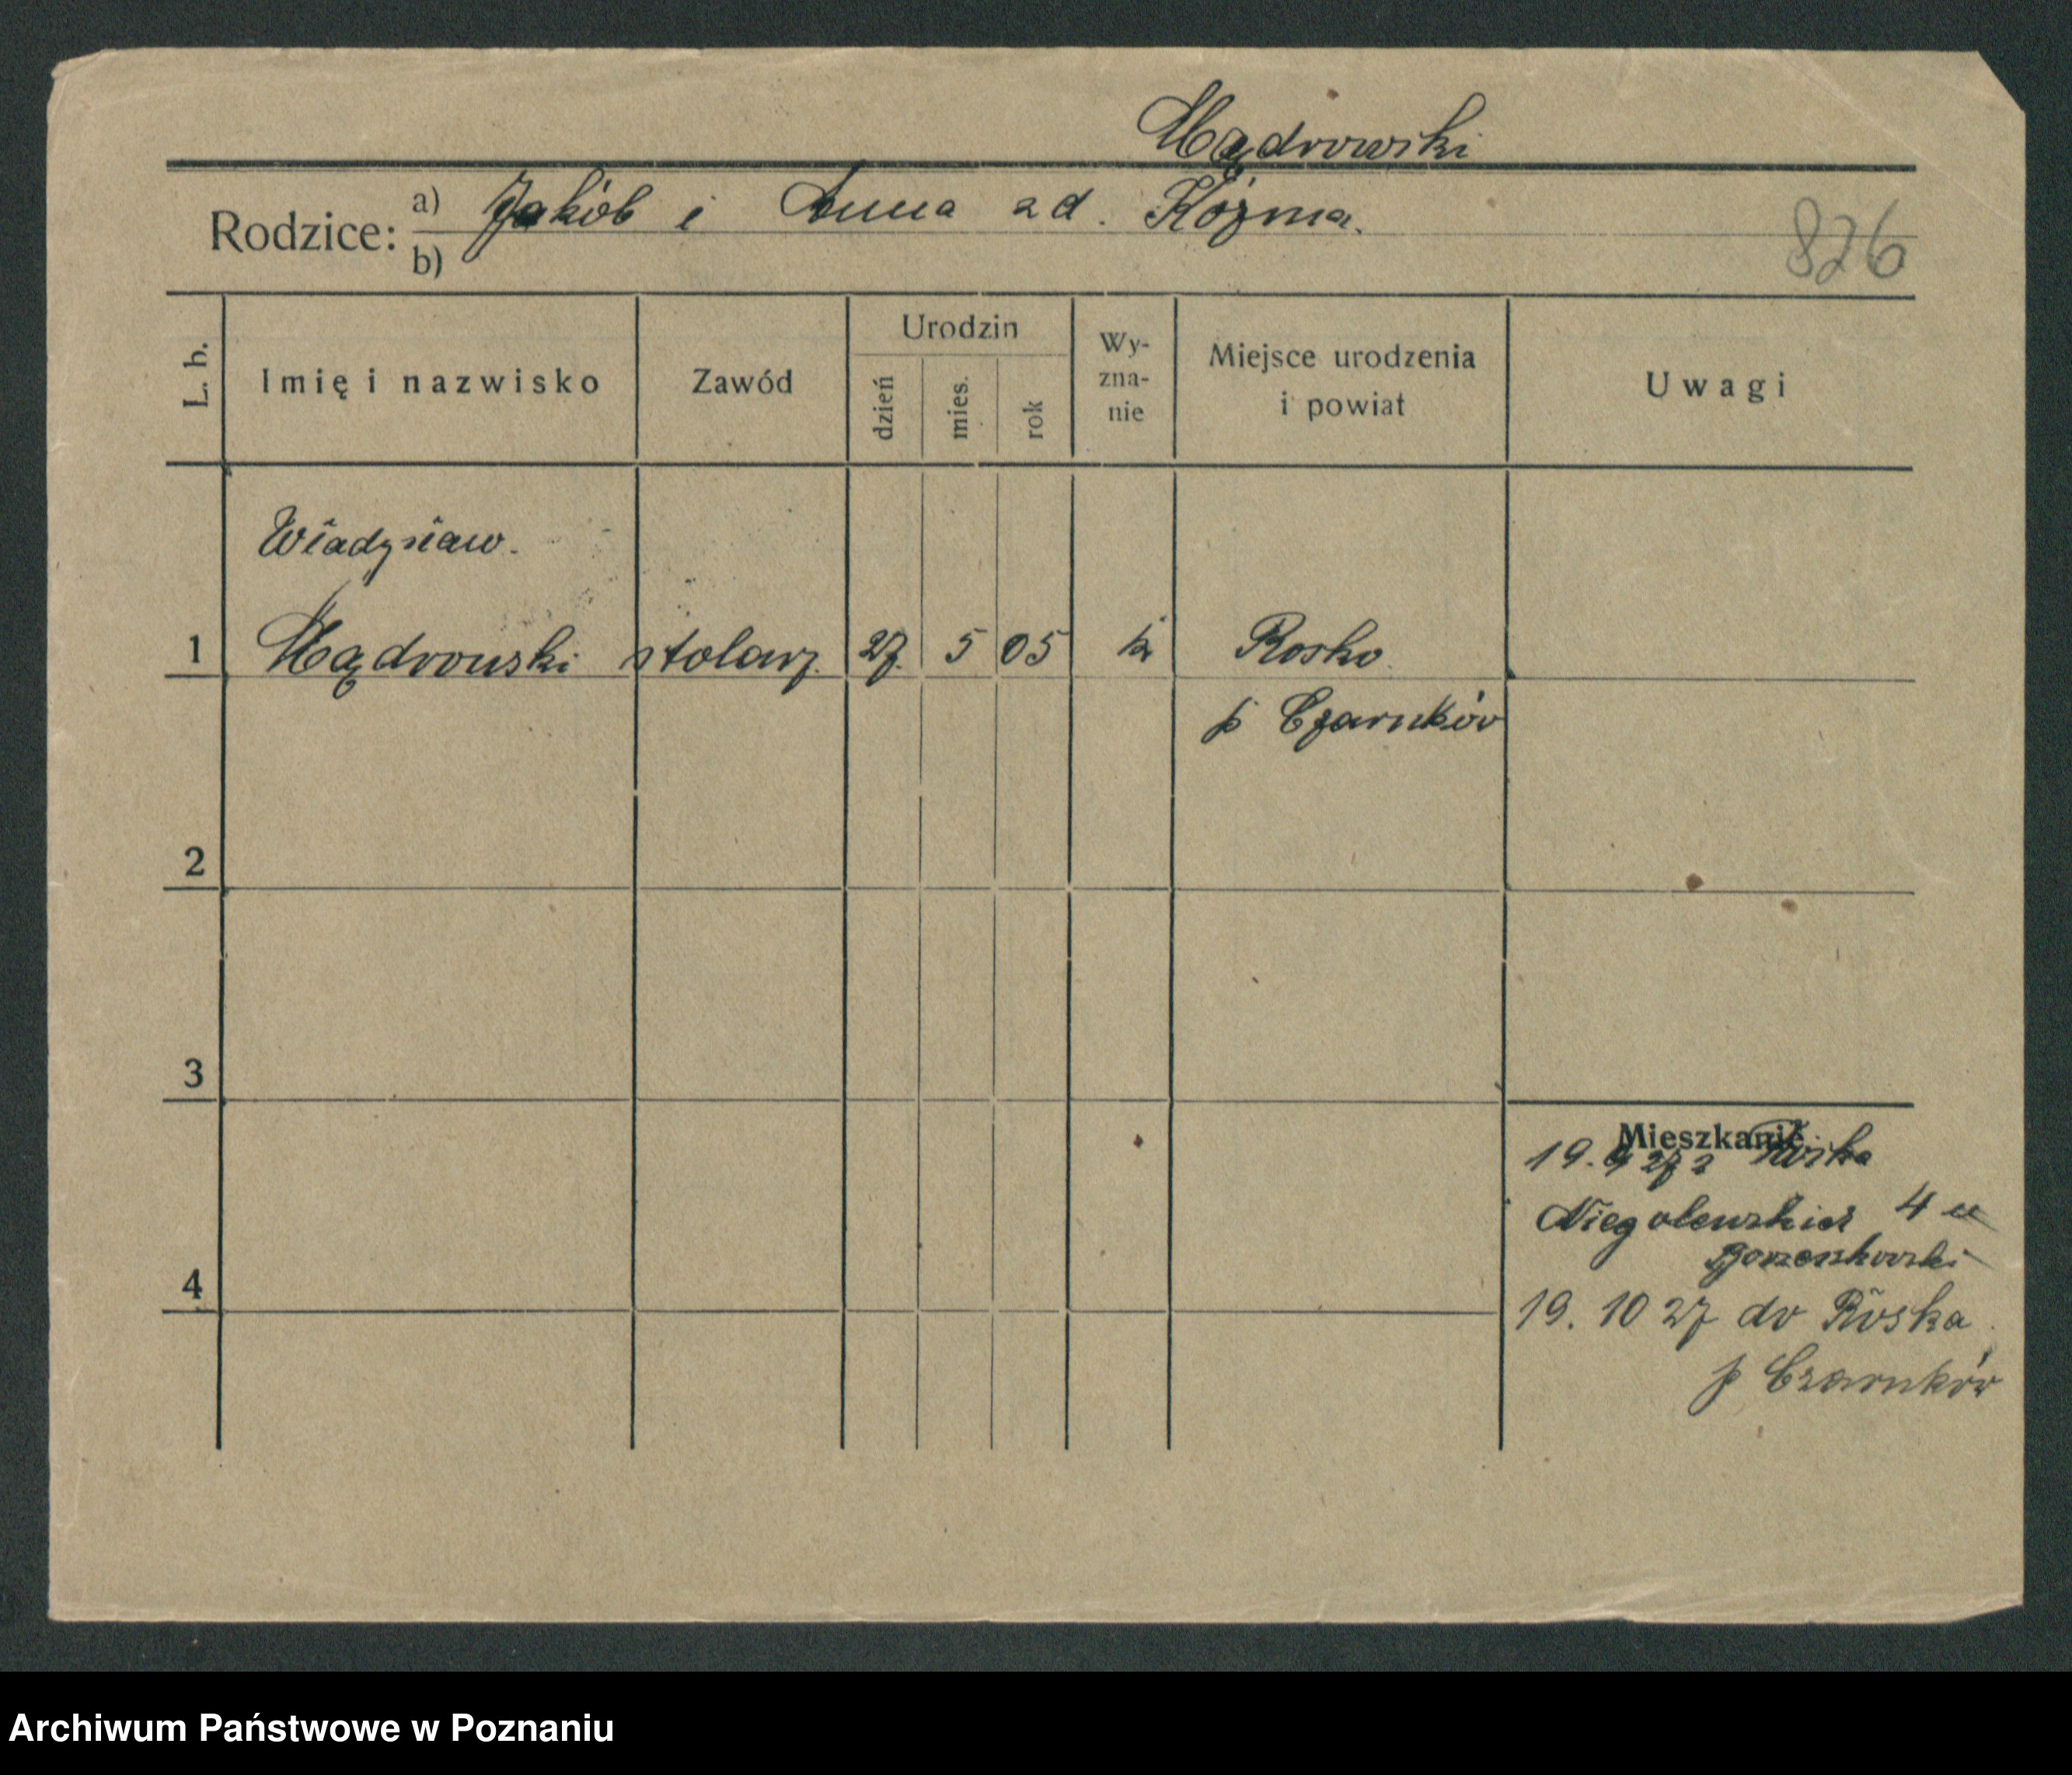 Mądrowski
Rodzice: a) Jakób i Anna zd. Kózma.
b)
826
L. b. Imię i nazwisko Zawód Urodzin dzień mies. rok Wy-zna-nie Miejsce urodzenia i powiat Uwagi
Władysław.
1 Mądrowski stolarz 27. 5 05 k Rosko
p Czarnków
2
3
Mieszkanie:
19. 9 27 z
Niegolewskich 4 u
4
19. 10 27 do Roska
p Czarnków
Archiwum Państwowe w Poznaniu